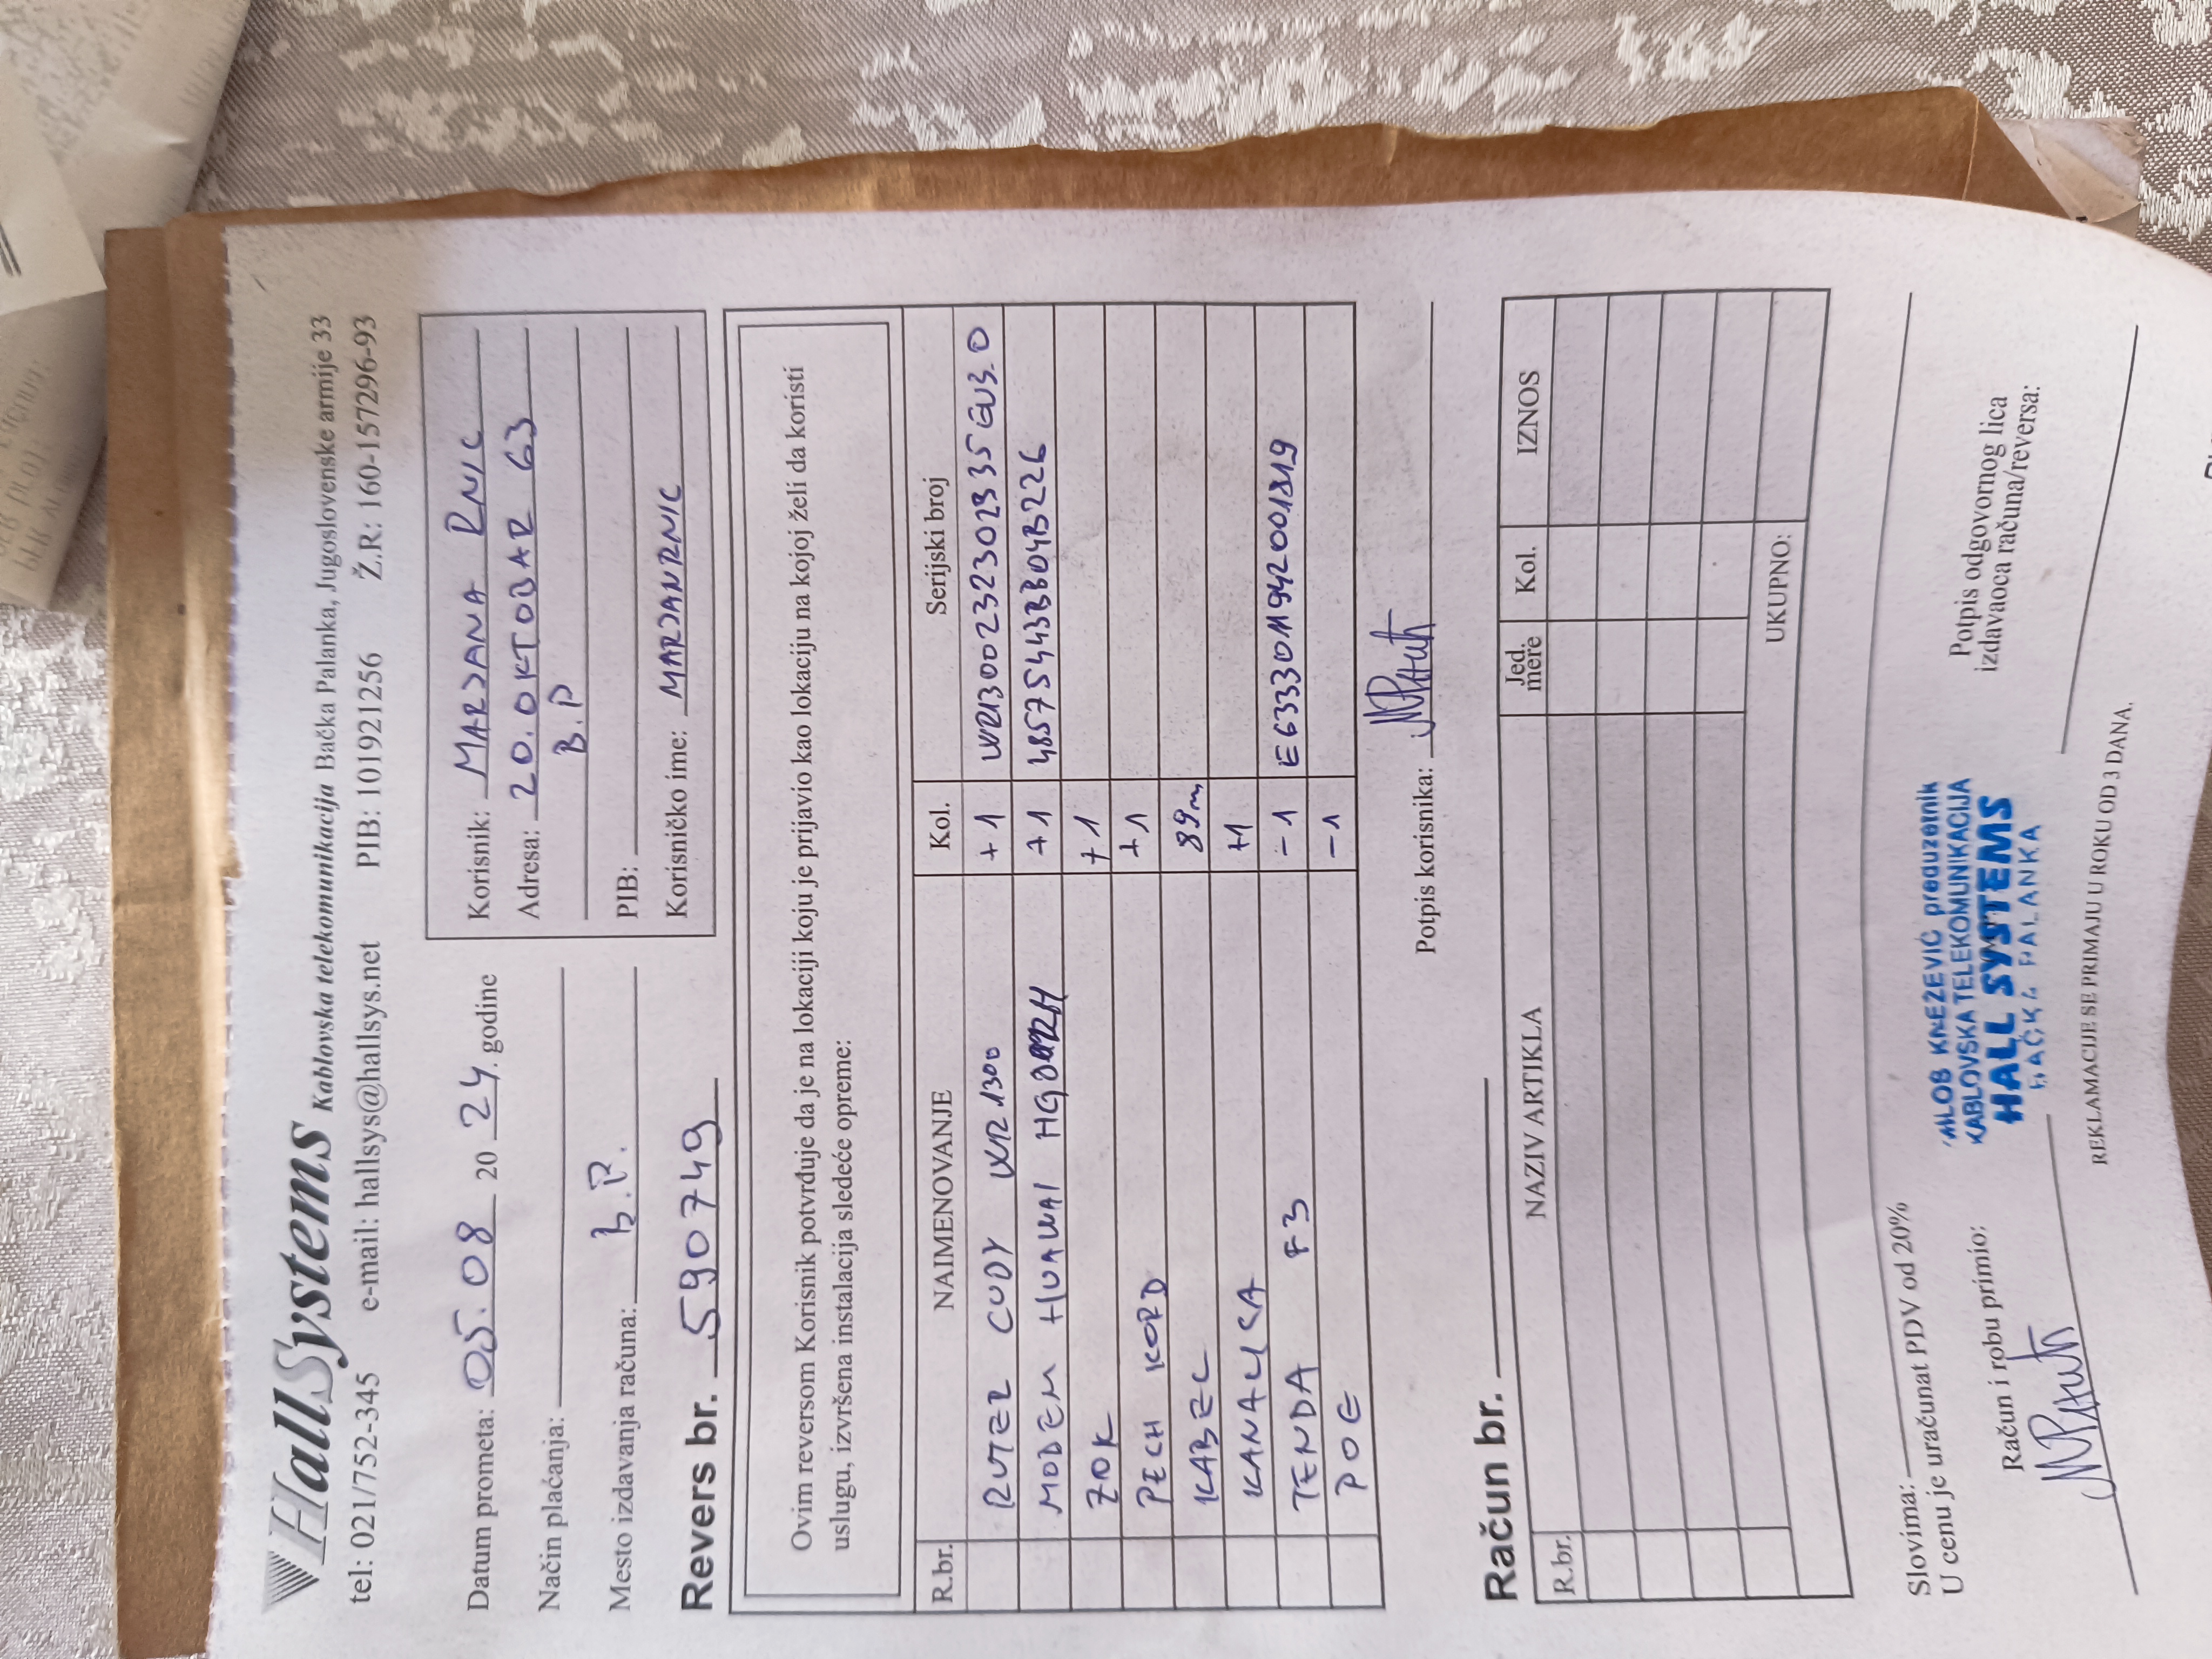 HallSystems Kablovska telekomunikacija Bačka Palanka, Jugoslovenske armije 33
tel: 021/752-345 e-mail: hallsys@hallsys.net PIB: 101921256 Ž.R: 160-157296-93
Datum prometa: 05.08 20 24. godine
Način plaćanja:
Mesto izdavanja računa: B.P.
Korisnik: MARJANA RNIC
Adresa: 20.OKTOBAR 63
B.P
PIB:
Korisničko ime: MARJANRNIC
Revers br. 590749
Ovim reversom Korisnik potvrđuje da je na lokaciji koju je prijavio kao lokaciju na kojoj želi da koristi
uslugu, izvršena instalacija sledeće opreme:
R.br. NAIMENOVANJE Kol. Serijski broj
RUTER CUDY WR1300 +1 WR13002323029335EU3.0
MODEM HUAWAI +1 485754433BB04B226
ZOK +1
PECH KORD +1
KABEL 89m
KANALICA +1
TENDA F3 -1 E6333011942001819
POE -1
Potpis korisnika:
Račun br.
R.br. NAZIV ARTIKLA Jed. mere Kol. IZNOS
UKUPNO:
Slovima:
U cenu je uračunat PDV od 20%
Račun i robu primio:
MILOŠ KNEŽEVIĆ preduzetnik
KABLOVSKA TELEKOMUNIKACIJA
HALL SYSTEMS
BAČKA PALANKA
Potpis odgovornog lica
izdavaoca računa/reversa:
REKLAMACIJE SE PRIMAJU U ROKU OD 3 DANA.